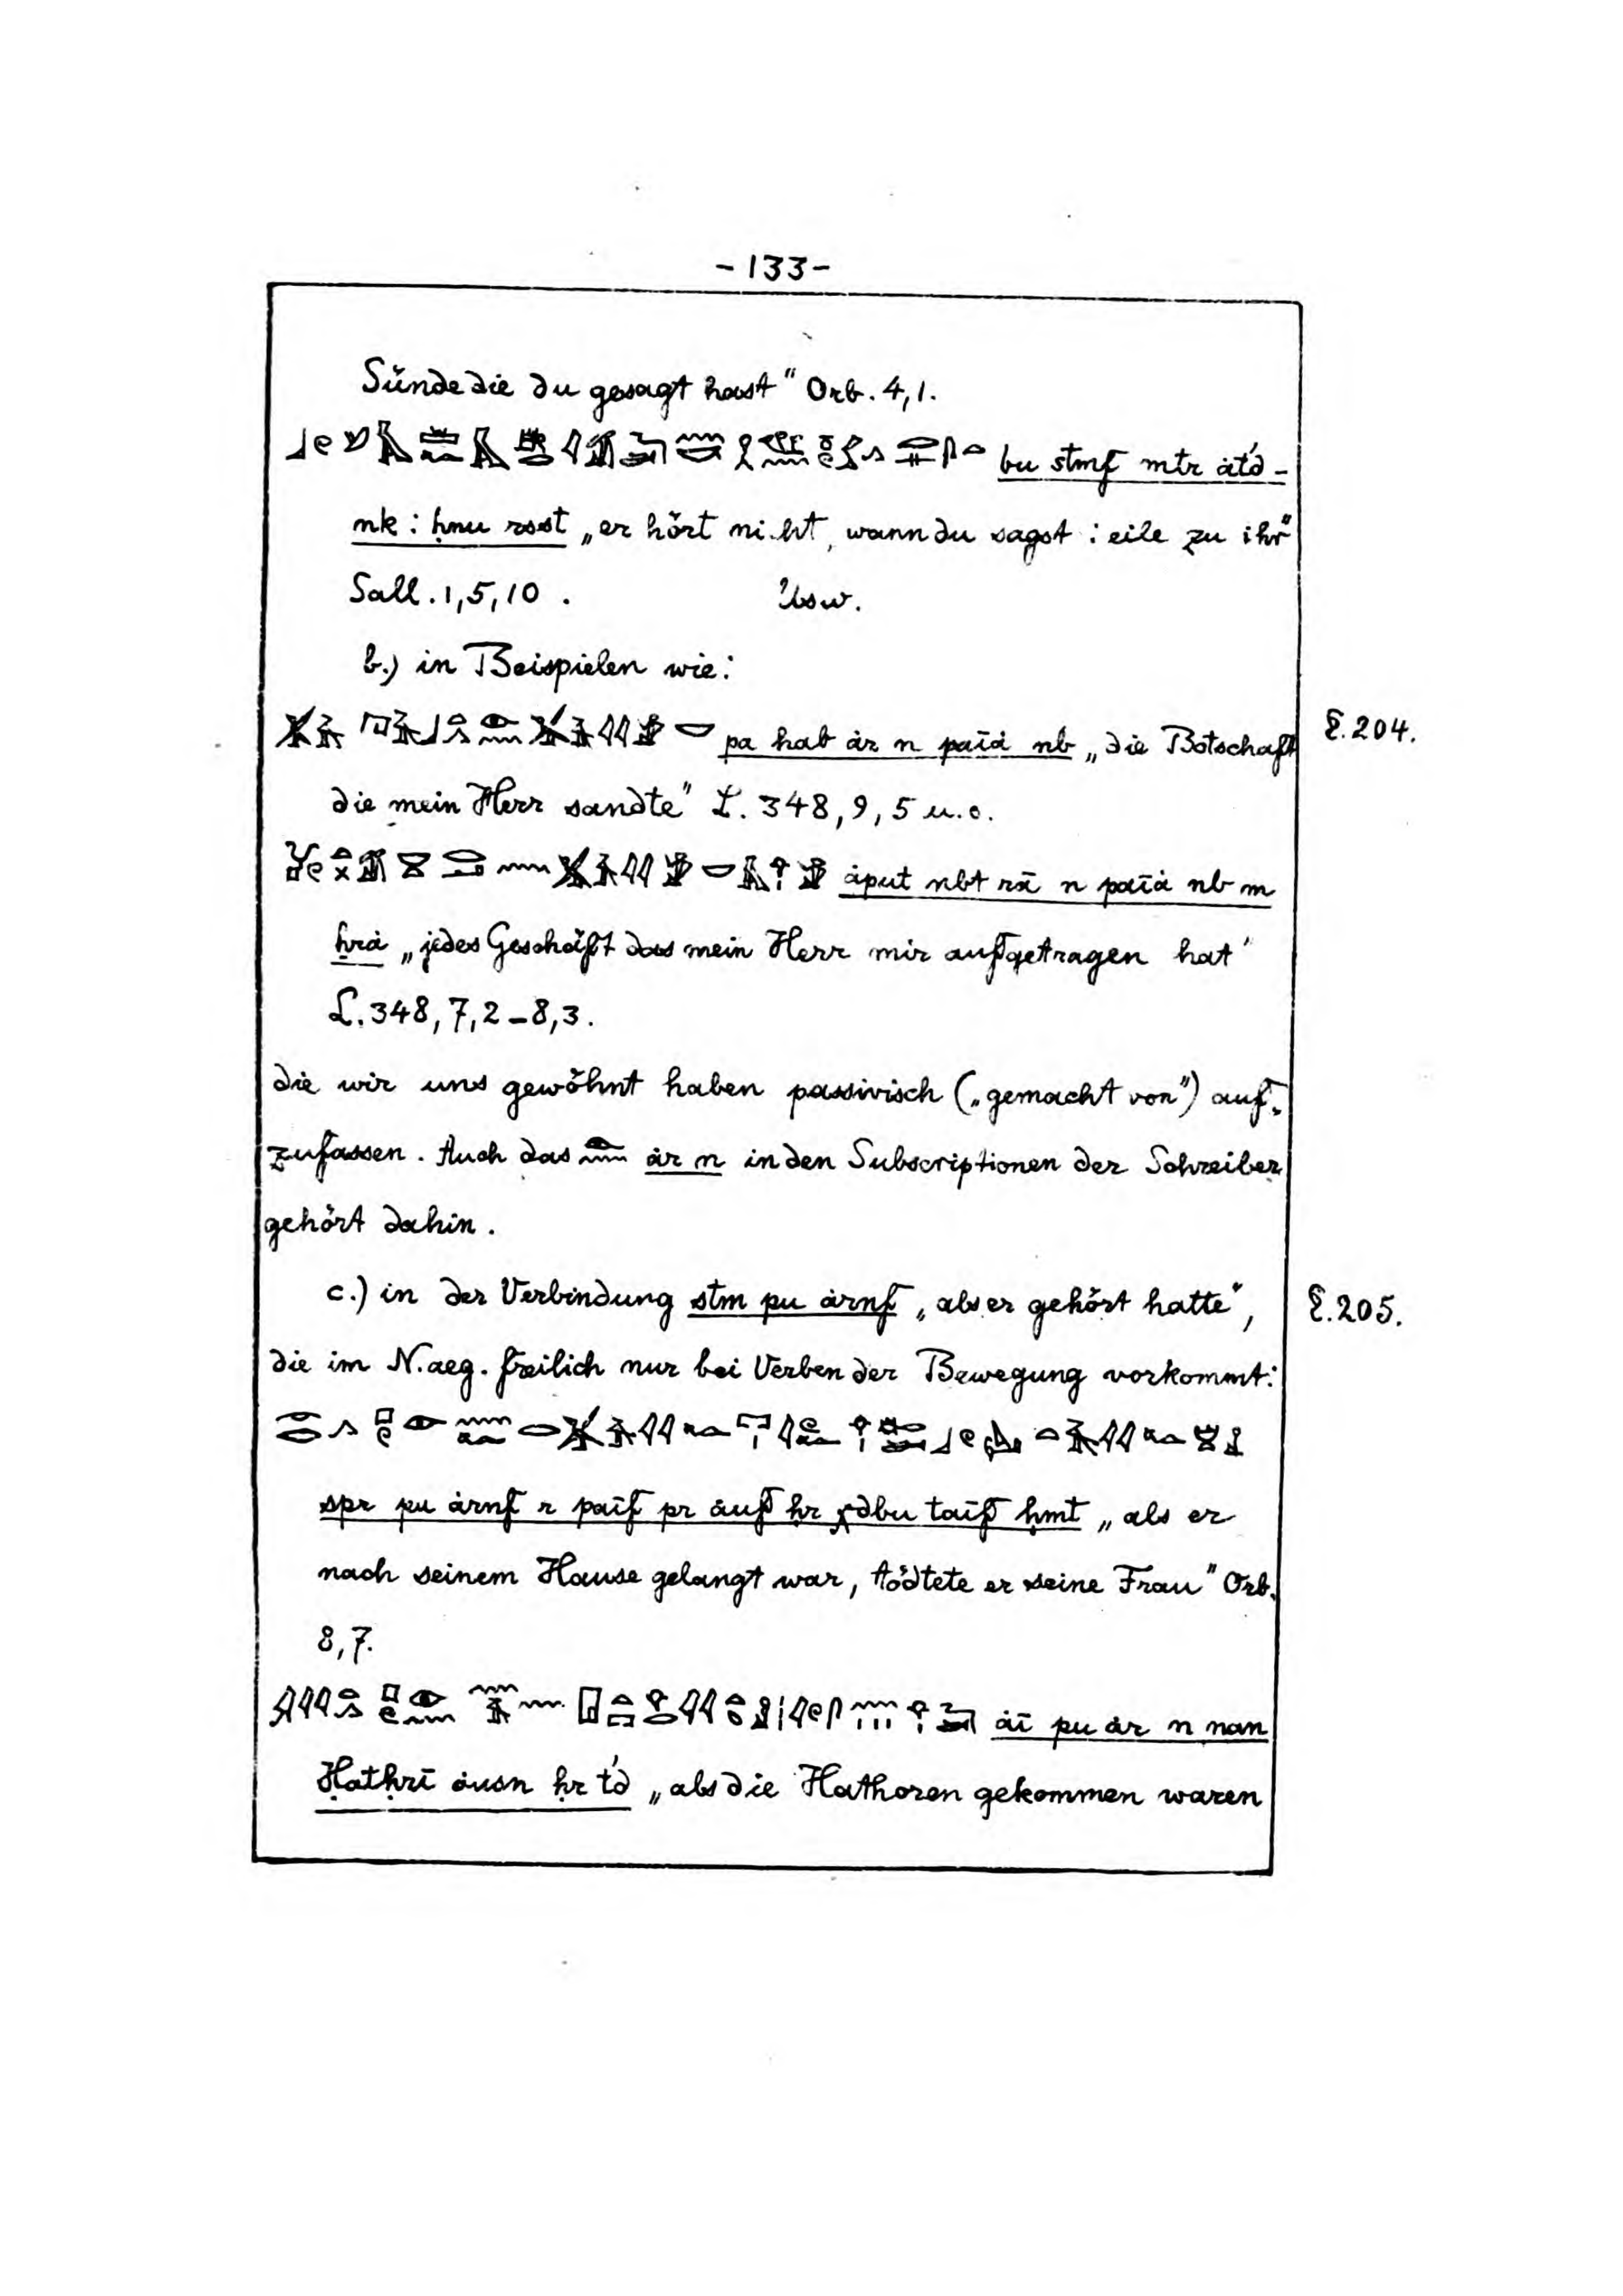 -133-
Sünde die du gesagt hast" Orb. 4,1.
bu stmf mtr ȧt́d-
nk : ḥnu rsst „er hört nicht, wann du sagst : eile zu ihr"
Sall. 1,5,10 . Usw.
b.) in Beispielen wie:
pa hab ȧr n paīȧ nb „die Botschaft §.204.
die mein Herr sandte" L. 348,9,5 u.o.
ȧput nbt rā n paīȧ nb m
ḥrȧ „jedes Geschäft das mein Herr mir aufgetragen hat"
L. 348,7,2-8,3.
die wir uns gewöhnt haben passivisch („gemacht von") auf-
zufassen. Auch das ȧr n in den Subscriptionen der Schreiber
gehört dahin.
c.) in der Verbindung stm pu ȧrnf „als er gehört hatte", §.205.
die im N.aeg. freilich nur bei Verben der Bewegung vorkommt:
spr pu ȧrnf r paīf pr ȧuf ḥr dbu taīf ḥmt „als er
nach seinem Hause gelangt war, tödtete er seine Frau" Orb.
8,7.
ȧī pu ȧr n nan
Ḥatḥrī ȧusn ḥr t́d „als die Hathoren gekommen waren